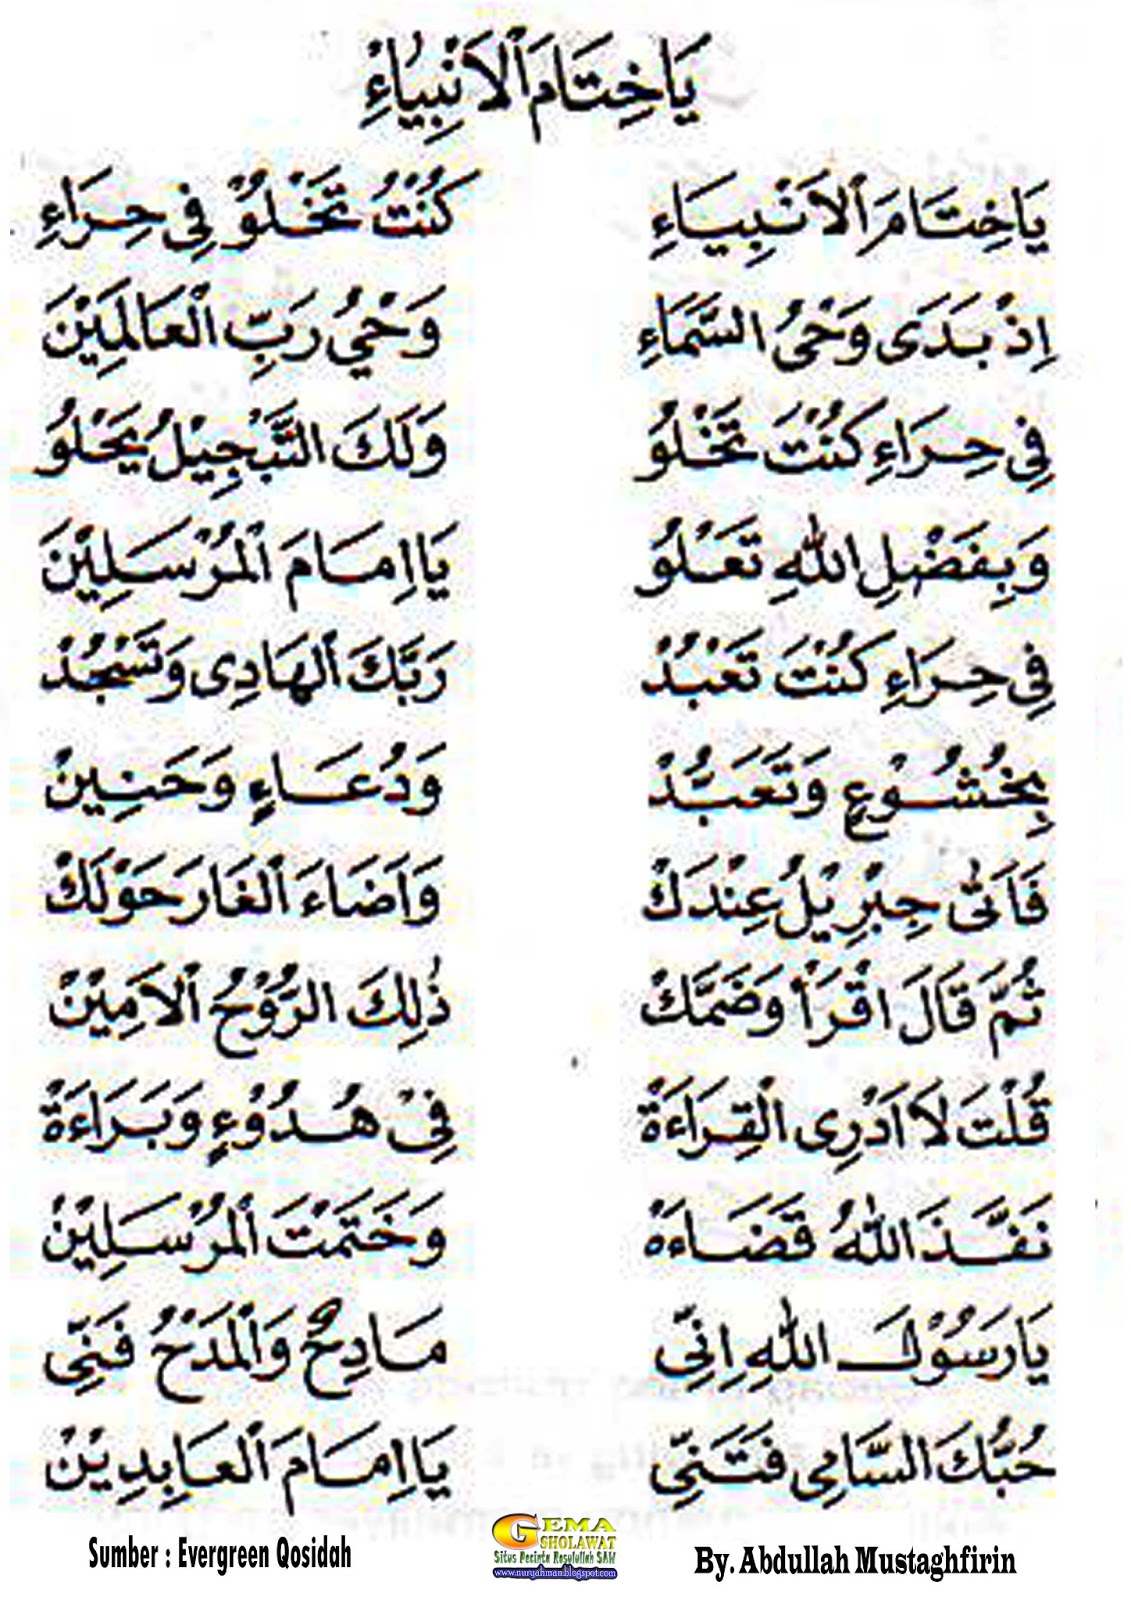 يَاخِتَامَ ٱلاَنْبِيَاءِ
يَاخِتَامَ ٱلاَنْبِيَاءِ كُنْتُ تَخْلُوْ فِى حِرَاءِ
اِذْ بَدَى وَحْىُ السَّمَاءِ وَحْيُ رَبِّ الْعَالَمِيْنَ
فِى حِرَاءِ كُنْتَ تَخْلُوُ وَلَكَ التَّبْجِيْلُ يَحْلُوُ
وَبِفَضْلِ اللّٰهِ تَعْلُوُ يَااِمَامَ ٱلْمُرْسَلِيْنَ
فِى حِرَاءِ كُنْتَ تَعْبُدْ رَبَّكَ ٱلْهَادِى وَتَسْجُدْ
بِخُشُوْعٍ وَتَعَبُّدْ وَدُعَاءٍ وَحَنِيْنْ
فَاَتٰى جِبْرِيْلُ عِنْدَكْ وَاَضَاءَ ٱلْغَارَ حَوْلَكْ
ثُمَّ قَالَ اقْرَأْ وَضَمَّكْ ذٰلِكَ الرُّوْحُ ٱلاَمِيْنْ
قُلْتَ لاَ اَدْرِى الْقِرَاءَةْ فِىْ هُدُوْءٍ وَبَرَاءَةْ
نَفَّذَ اللّٰهُ قَضَاءَهْ وَخَتَمْتَ ٱلْمُرْسَلِيْنْ
يَارَسُوْلَ اللّٰهِ اِنِّى مَادِحٌ وَٱلْمَدْحُ فَنِّى
حُبُّكَ السَّامِى فَتَنِّى يَااِمَامَ ٱلْعَابِدِيْنْ
Sumber : Evergreen Qosidah
GEMA
SHOLAWAT
Situs Pecinta Rosulullah SAW
www.nuryahman.blogspot.com
By. Abdullah Mustaghfirin